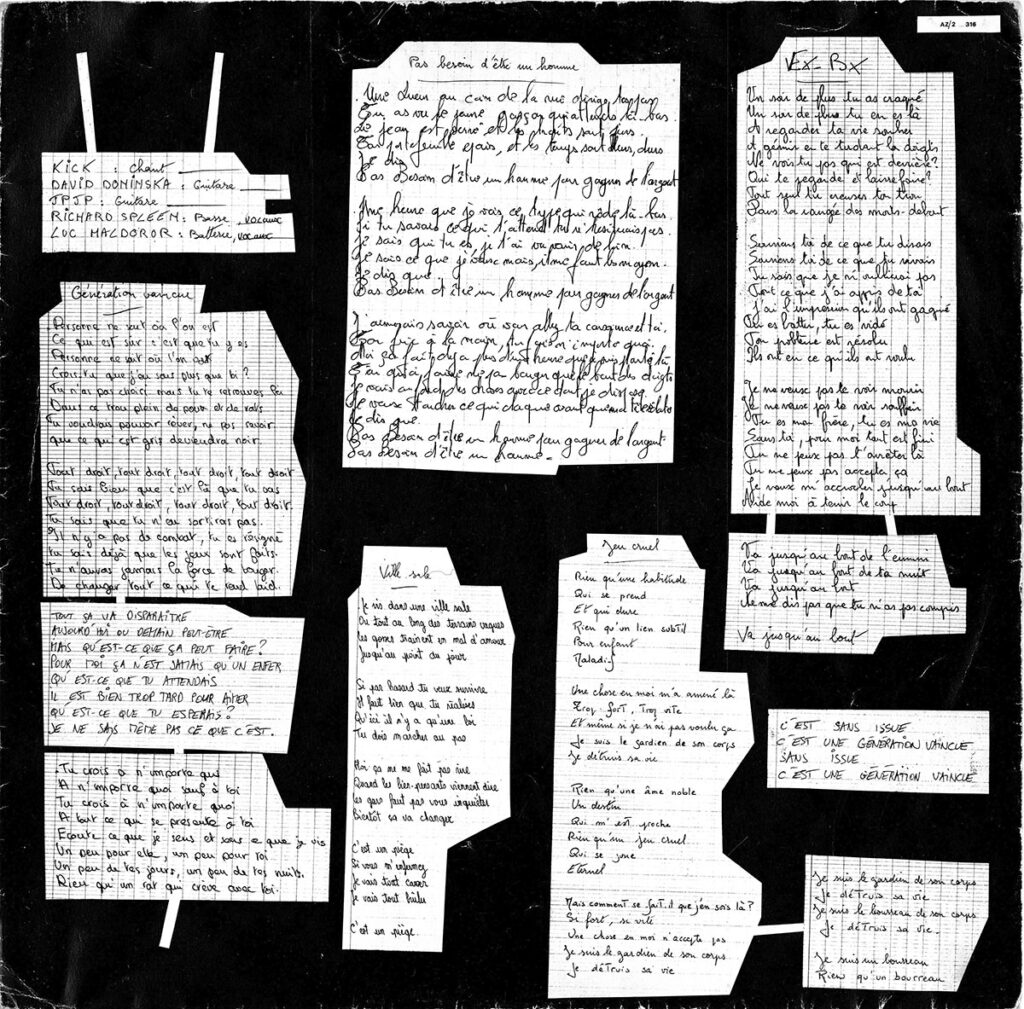 AZ/2 316
KICK : Chant
DAVID DONINSKA : Guitare
JPJP : Guitare
RICHARD SPLEEN : Basse, vocaux
LUC MALDOROR : Batterie, vocaux
Génération vaincue
Personne ne sait où l'on est
Ce qui est sûr c'est que tu y es
Personne ne sait où l'on est
Crois-tu que j'en sais plus que toi ?
Tu n'as pas choisi mais tu te retrouves là
Dans ce trou plein de peur et de rats
Tu voudrais pouvoir rêver, ne pas savoir
que ce qui est gris deviendra noir.
Tout droit, tout droit, tout droit, tout droit
Tu sais bien que c'est là que tu vas
Tout droit, tout droit, tout droit, tout droit.
Tu sais que tu n'en sortiras pas.
Il n'y a pas de combat, tu es résigné
tu sais déjà que les jeux sont faits.
Tu n'auras jamais la force de bouger.
De changer tout ce qui te rend laid.
TOUT ÇA VA DISPARAÎTRE
AUJOURD'HUI OU DEMAIN PEUT-ÊTRE
MAIS QU'EST-CE QUE ÇA PEUT FAIRE ?
POUR MOI ÇA N'EST JAMAIS QU'UN ENFER
QU'EST-CE QUE TU ATTENDAIS
IL EST BIEN TROP TARD POUR AIMER
QU'EST-CE QUE TU ESPERAIS ?
JE NE SAIS MÊME PAS CE QUE C'EST.
Tu crois à n'importe qui
A n'importe quoi sauf à toi
Tu crois à n'importe quoi
A tout ce qui se présente à toi
Ecoute ce que je sens et sais ce que je vis
Un peu pour elle, un peu pour toi
Un peu de tes jours, un peu de tes nuits.
Rien qu'un rat qui crève avec toi.
Pas besoin d'être un homme
Une lueur au coin de la rue dirige tes pas
Tu as vu le jeune garçon qui attends là-bas.
Le jean est serré et les
Ton portefeuille épais, et les temps sont durs, durs
Je dis
Pas Besoin d'être un homme pour gagner de l'argent
Une heure que je vois ce type qui rôde là-bas.
Si tu savais ce qui t'attend tu n'
Je sais qui tu es, je t'ai vu venir de loin.
Je sais ce que je mais, il me faut les moyens.
Je dis que
Pas Besoin d'être un homme pour gagner de l'argent
J'aimerais savoir où vous allez ta conscience et toi.
Ton fric à la main, tu n'importe quoi.
Moi ça fait déjà plus d'une heure que je suis planté là
le bout des doigts
Je vais au des choses avec ce dont je dispose
Je veux ce qui claque avant que ma tête
Je dis que
Pas Besoin d'être un homme pour gagner de l'argent
Pas Besoin d'être un homme.
Ville sale
Je vis dans une ville sale
Où tout au long des terrains vagues
les gosses traînent en mal d'amour
Jusqu'au point du jour
Si par hasard tu veux survivre
Il faut bien que tu réalises
Qu'ici il n'y a qu'une loi
Tu dois marcher au pas
Moi ça ne me fait pas rire
Quand les bien-pensants viennent dire
les gars faut pas vous inquiéter
Bientôt ça va changer
C'est un piège
Si vous m'enfermez
Je vais tout casser
Je vais tout brûler
C'est un piège.
Jeu cruel
Rien qu'une habitude
Qui se prend
Et qui dure
Rien qu'un lien subtil
Bon enfant
Maladif
Une chose en moi m'a amené là
Trop fort, trop vite
Et même si je n'ai pas voulu ça
Je suis le gardien de son corps
Je détruis sa vie
Rien qu'une âme noble
Un destin
Qui m'est proche
Rien qu'un jeu cruel
Qui se joue
Eternel
Mais comment se fait-il que j'en sois là ?
Si fort, si vite
Une chose en moi n'accepte pas
Je suis le gardien de son corps
Je détruis sa vie
Je suis le gardien de son corps
Je détruis sa vie
Je suis le bourreau de son corps
Je détruis sa vie.
Je suis un bourreau
Rien qu'un bourreau
Ex-Bx
Un soir de plus tu as craqué
Un soir de plus tu en es là
A regarder ta vie sombrer
et gémir en te tordant les doigts
Ne vois-tu pas qui est derrière ?
Qui te regarde et laisse faire ?
Tout seul tu creuses ton trou
Dans la rangée des morts-debout
Souviens toi de ce que tu disais
Souviens toi de ce que tu vivais
Tu sais que je n'oublierai pas
Tout ce que j'ai appris de toi
J'ai l'impression qu'ils ont gagné
Tu es battu, tu es vidé
Ton problème est résolu
Ils ont eu ce qu'ils ont voulu
Je ne veux pas te voir mourir
Je ne veux pas te voir souffrir
Tu es mon frère, tu es ma vie
Sans toi, pour moi tout est fini
Tu ne peux pas t'arrêter là
Tu ne peux pas accepter ça
Je veux m'accrocher jusqu'au bout
Aide moi à tenir le coup
Va jusqu'au bout de l'ennui
Va jusqu'au bout de ta nuit
Va jusqu'au bout
Ne me dis pas que tu n'as pas compris
Va jusqu'au bout
C'EST SANS ISSUE
C'EST UNE GÉNÉRATION VAINCUE
SANS ISSUE
C'EST UNE GÉNÉRATION VAINCUE